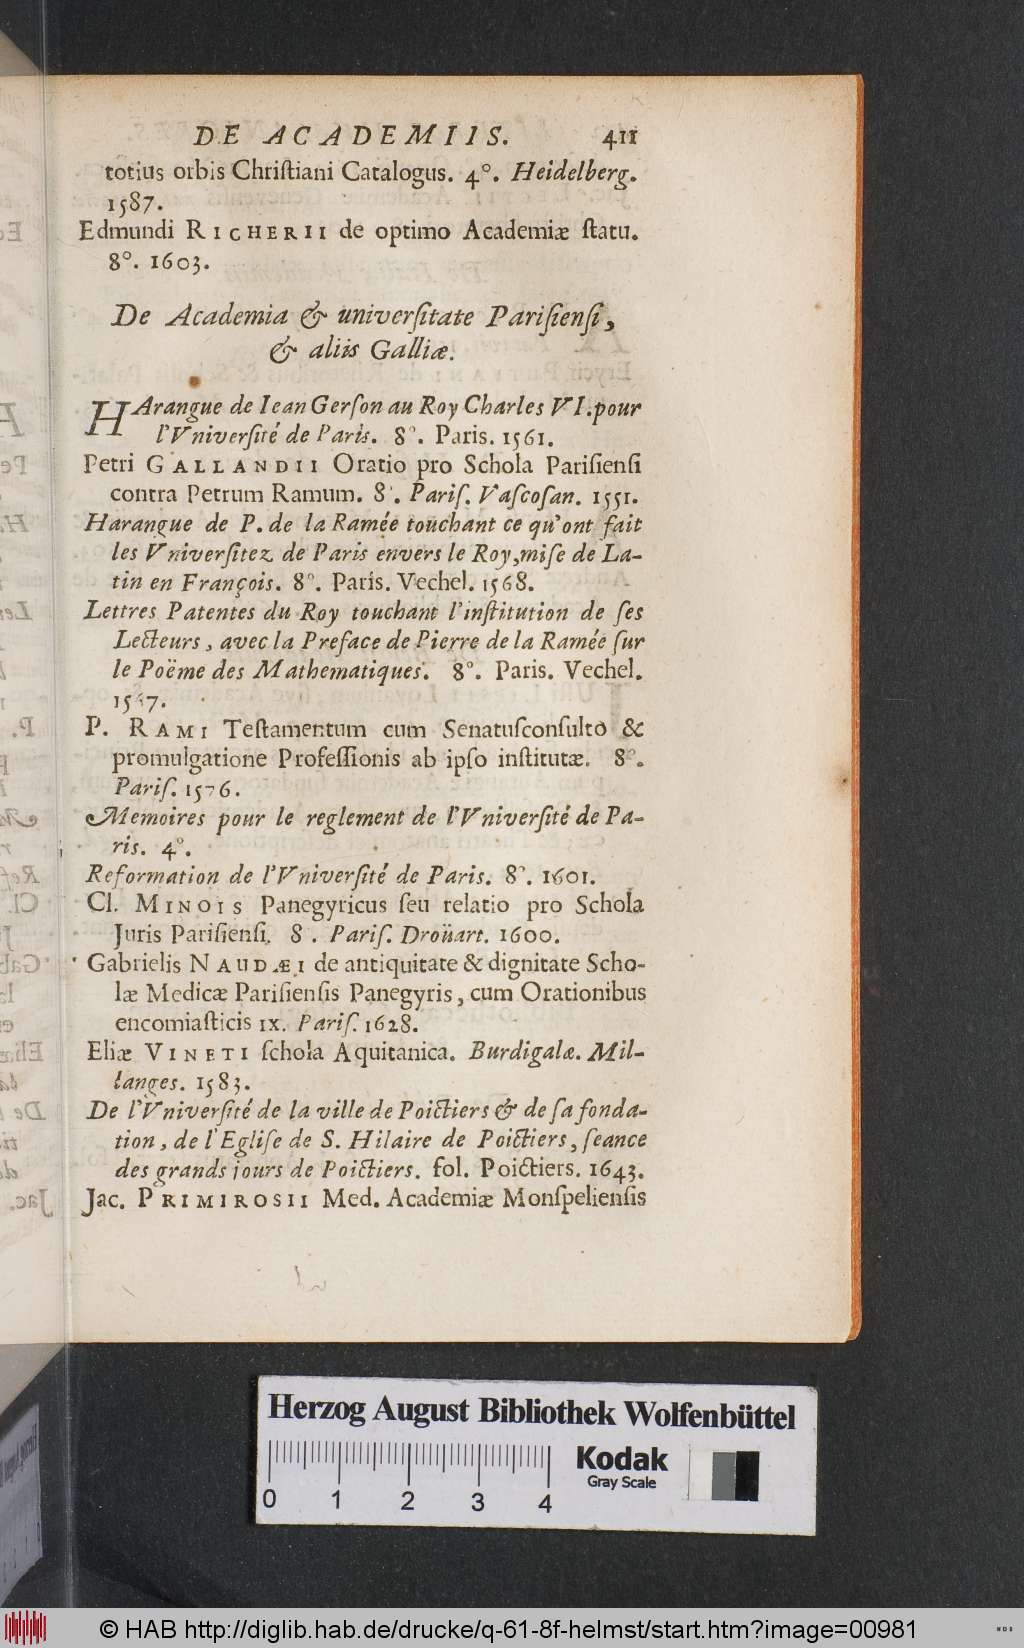 DE ACADEMIIS. 411
totius orbis Chriſtiani Catalogus. 4°. Heidelberg.
1587.
Edmundi RICHERII de optimo Academiæ ſtatu.
8°. 1603.
De Academia & univerſitate Pariſienſi,
& aliis Galliæ.
HArangue de Iean Gerſon au Roy Charles VI. pour
l'Vniverſité de Paris. 8°. Paris. 1561.
Petri GALLANDII Oratio pro Schola Pariſienſi
contra Petrum Ramum. 8°. Pariſ. Vaſcoſan. 1551.
Harangue de P. de la Ramée touchant ce qu'ont fait
les Vniverſitez de Paris envers le Roy, miſe de La-
tin en François. 8°. Paris. Vechel. 1568.
Lettres Patentes du Roy touchant l'inſtitution de ſes
Lecteurs, avec la Preface de Pierre de la Ramée ſur
le Poëme des Mathematiques. 8°. Paris. Vechel.
P. RAMI Teſtamentum cum Senatuſconſulto &
promulgatione Profeſſionis ab ipſo inſtitutæ. 8°.
Pariſ. 1576.
Memoires pour le reglement de l'Vniverſité de Pa-
ris. 4°.
Reformation de l'Vniverſité de Paris. 8°. 1601.
Cl. MINOIS Panegyricus ſeu relatio pro Schola
Juris Pariſienſi. 8°. Pariſ. Droüart. 1600.
Gabrielis NAUDÆI de antiquitate & dignitate Scho-
læ Medicæ Pariſienſis Panegyris, cum Orationibus
encomiaſticis IX. Pariſ. 1628.
Eliæ VINETI ſchola Aquitanica. Burdigalæ. Mil-
langes. 1583.
De l'Vniverſité de la ville de Poictiers & de ſa fonda-
tion, de l'Egliſe de S. Hilaire de Poictiers, ſeance
des grands jours de Poictiers. fol. Poictiers. 1643.
Jac. PRIMIROSII Med. Academiæ Monſpelienſis
Herzog August Bibliothek Wolfenbüttel
Kodak
Gray Scale
0 1 2 3 4
© HAB http://diglib.hab.de/drucke/q-61-8f-helmst/start.htm?image=00981